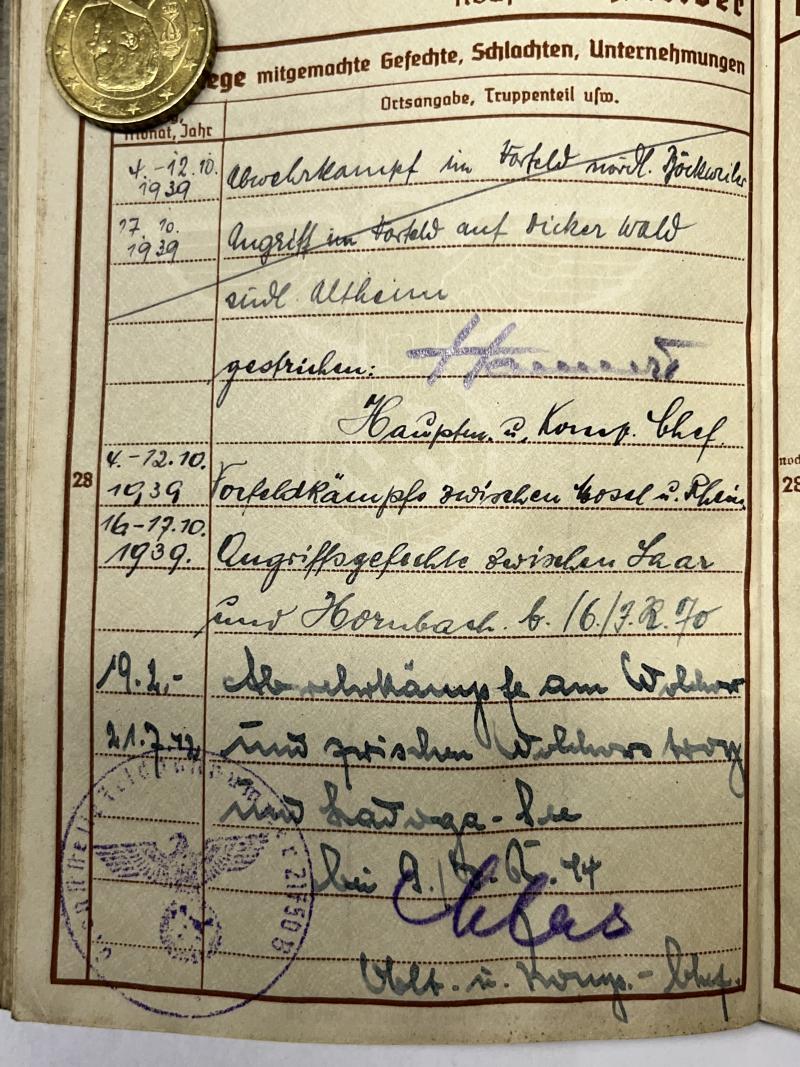 Kriege mitgemachte Gefechte, Schlachten, Unternehmungen
Monat, Jahr
Ortsangabe, Truppenteil usw.
4.-12.10. 1939 Abwehrkampf im Vorfeld nördl. Böckweiler
17.10. 1939 Angriff im Vorfeld auf Dicker Wald
südl. Altheim
gestrichen:
Hauptm. u. Komp. Chef.
28
4.-12.10. 1939 Vorfeldkämpfe zwischen Mosel u. Rhein
16.-17.10. 1939. Angriffsgefechte zwischen Saar
und Hornbach. b. /6./J.R.70
19.2.- Abwehrkämpfe am Wolchow
21.7.42, und zwischen Wolchow
und Ladoga-See
bei
Oblt. u. Komp.-Chef.
21750B
28